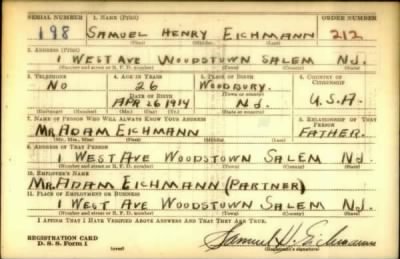 SERIAL NUMBER 1. NAME (Print) ORDER NUMBER
198 SAMUEL HENRY EICHMANN 212
(First) (Middle) (Last)
2. ADDRESS (Print)
1 WEST AVE WOODSTOWN SALEM N.J.
(Number and street or R. F. D. number) (Town) (County) (State)
3. TELEPHONE 4. AGE IN YEARS 5. PLACE OF BIRTH 6. COUNTRY OF CITIZENSHIP
NO 26 WOODBURY.
DATE OF BIRTH
APR 26 1914 N.J. U.S.A.
(Exchange) (Number) (Mo.) (Day) (Yr.) (State or country)
7. NAME OF PERSON WHO WILL ALWAYS KNOW YOUR ADDRESS 8. RELATIONSHIP OF THAT PERSON
MR. ADAM EICHMANN FATHER.
(Mr., Mrs., Miss) (First) (Middle) (Last)
9. ADDRESS OF THAT PERSON
1 WEST AVE WOODSTOWN SALEM N.J.
(Number and street or R. F. D. number) (Town) (County) (State)
10. EMPLOYER'S NAME
MR. ADAM EICHMANN (PARTNER)
11. PLACE OF EMPLOYMENT OR BUSINESS
1 WEST AVE WOODSTOWN SALEM N.J.
(Number and street or R. F. D. number) (Town) (County) (State)
I AFFIRM THAT I HAVE VERIFIED ABOVE ANSWERS AND THAT THEY ARE TRUE.
REGISTRATION CARD
D. S. S. Form 1 (over) Samuel H. Eichmann
(Registrant's signature)